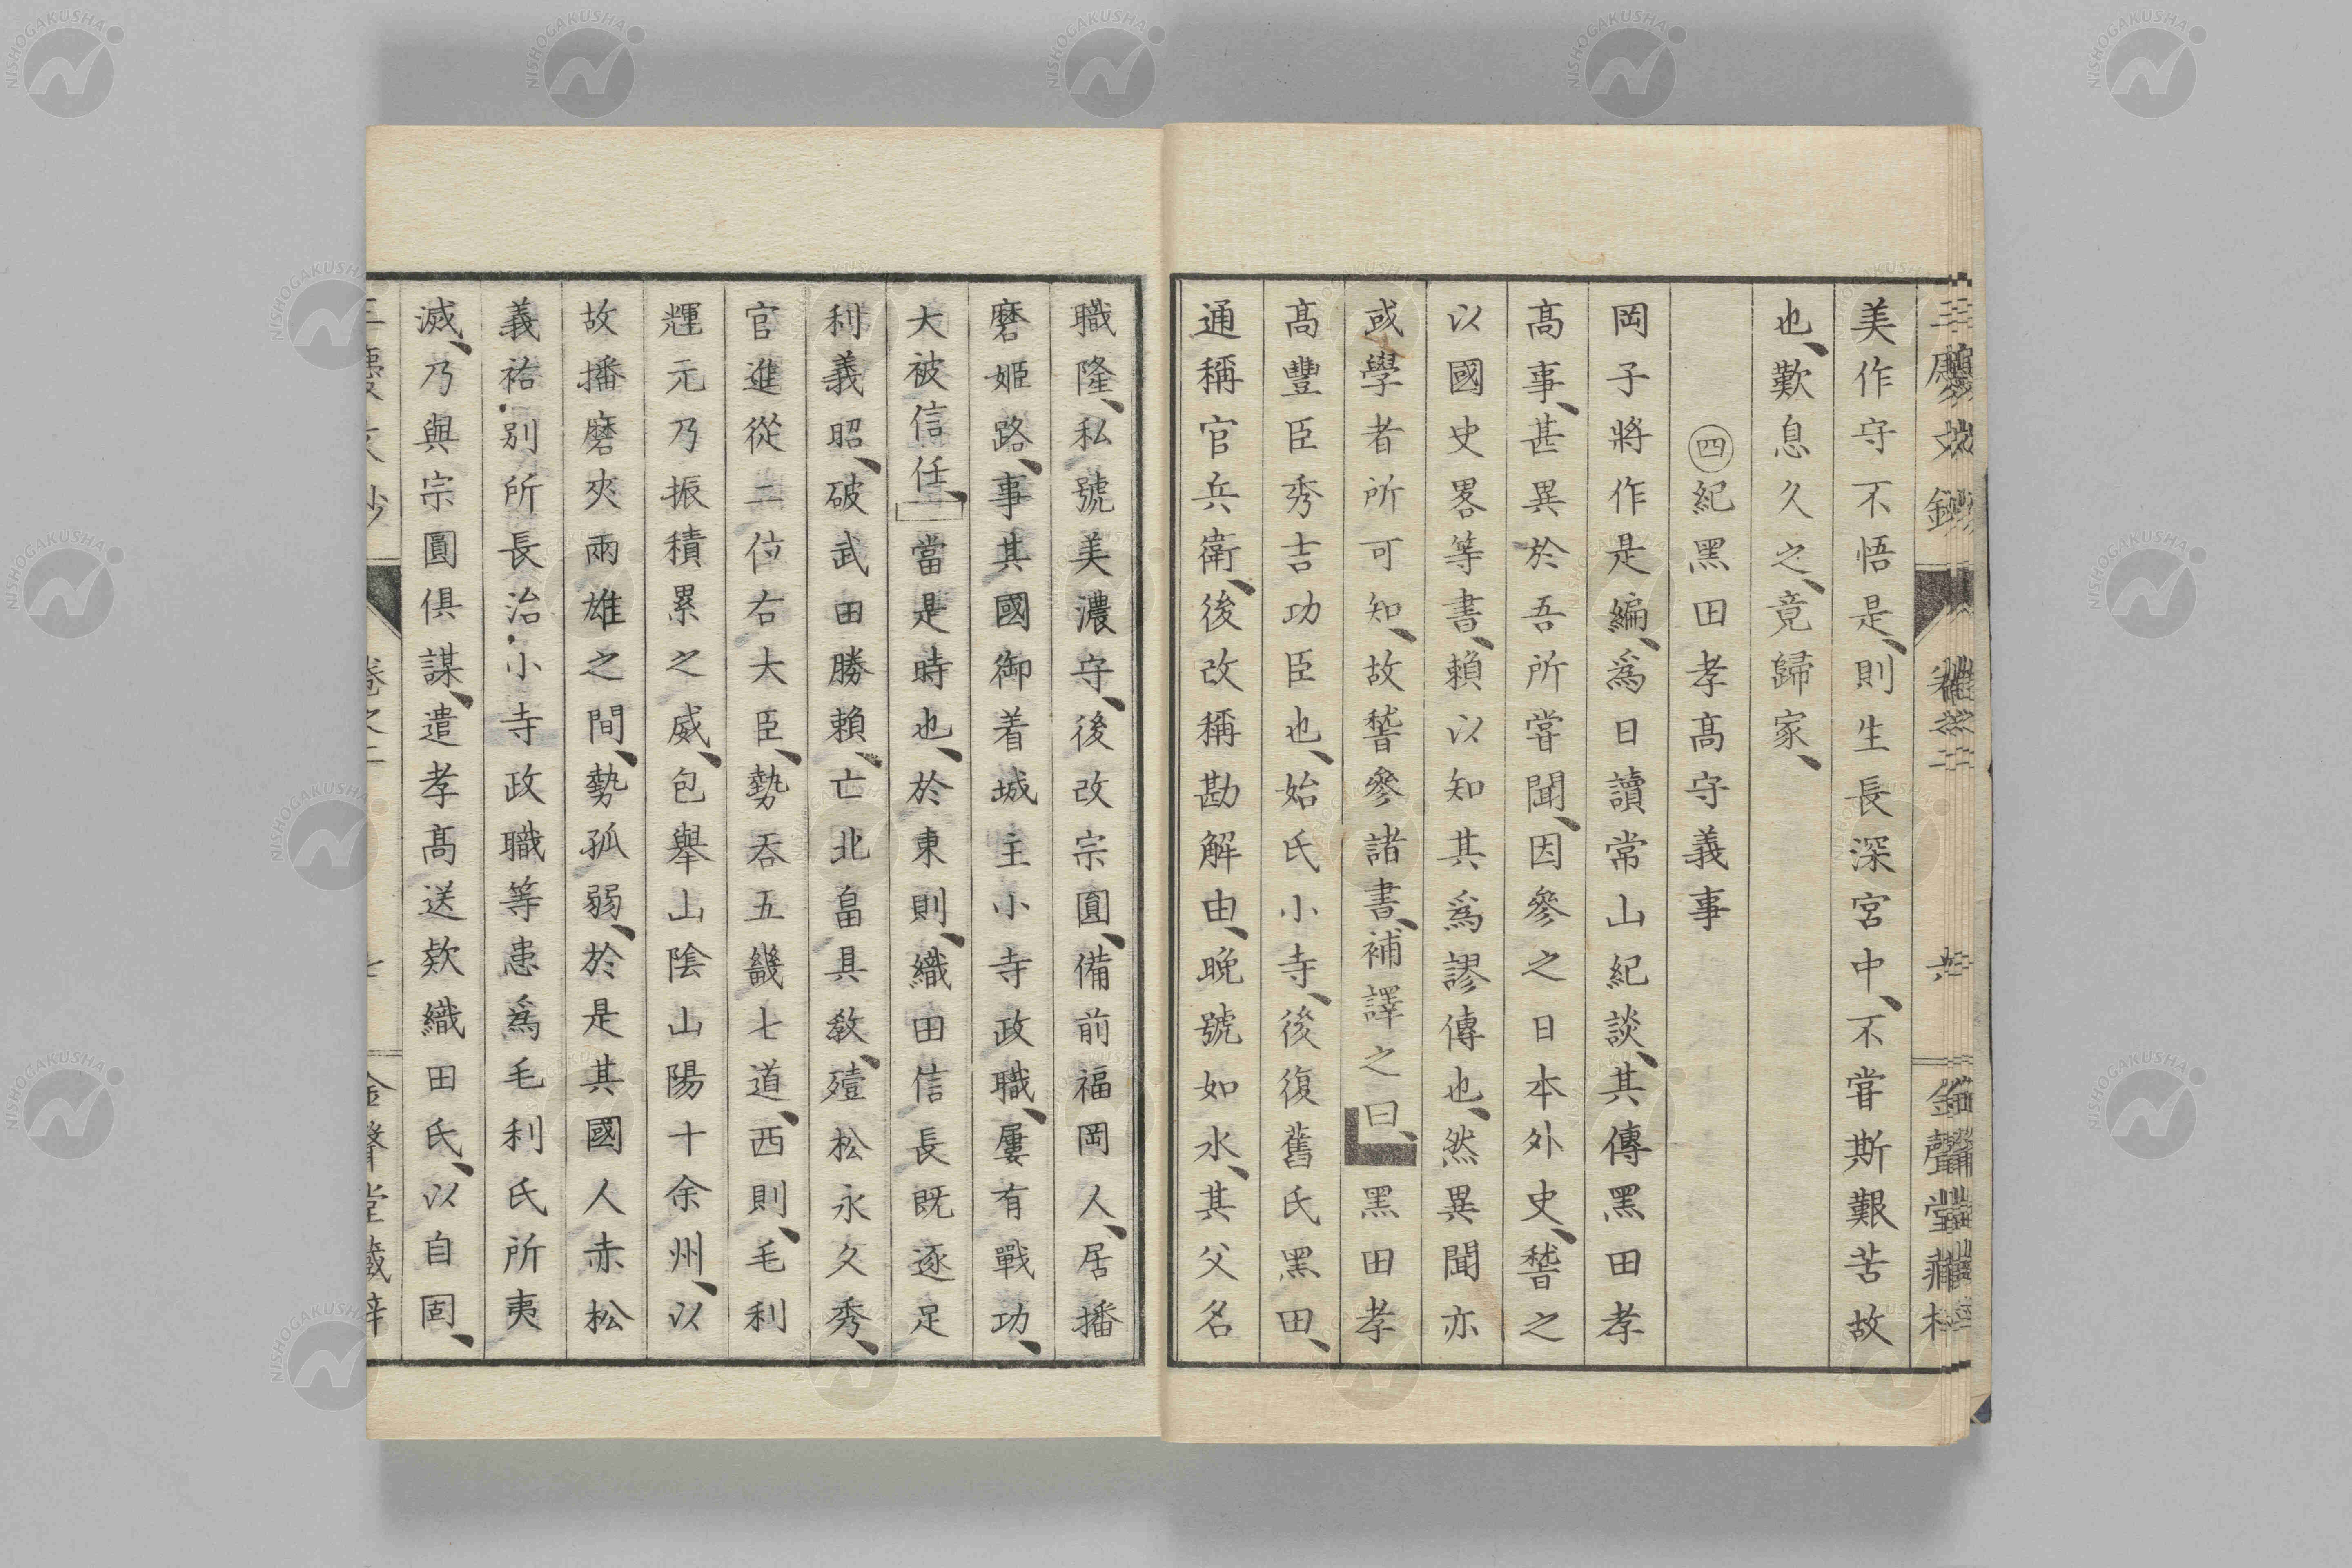 美作守不悟是、則生長深宮中、不甞斯艱苦故
也、歎息久之、竟歸家、
㊃紀黑田孝高守義事
岡子將作是編、爲日讀常山紀談、其傳黑田孝
高事、甚異於吾所甞聞、因參之日本外史、誓之
以國史畧等書、賴以知其爲謬傳也、然異聞亦
或學者所可知、故誓參諸書、補譯之曰、黑田孝
高豐臣秀吉功臣也、始氏小寺、後復舊氏黑田、
通稱官兵衛、後改稱勘解由、晚號如水、其父名
職隆、私號美濃守、後改宗圓、備前福岡人、居播
磨姬路、事其國御着城主小寺政職、屢有戰功、
大被信任、當是時也、於東則、織田信長既逐足
利義昭、破武田勝賴、亡北畠具教、殪松永久秀、
官進從二位右大臣、勢吞五畿七道、西則、毛利
輝元乃振積累之威、包舉山陰山陽十余州、以
故播磨夾兩雄之間、勢孤弱、於是其國人赤松
義祐・別所長治・小寺政職等患爲毛利氏所夷
滅、乃與宗圓俱謀、遣孝高送欵織田氏、以自固、